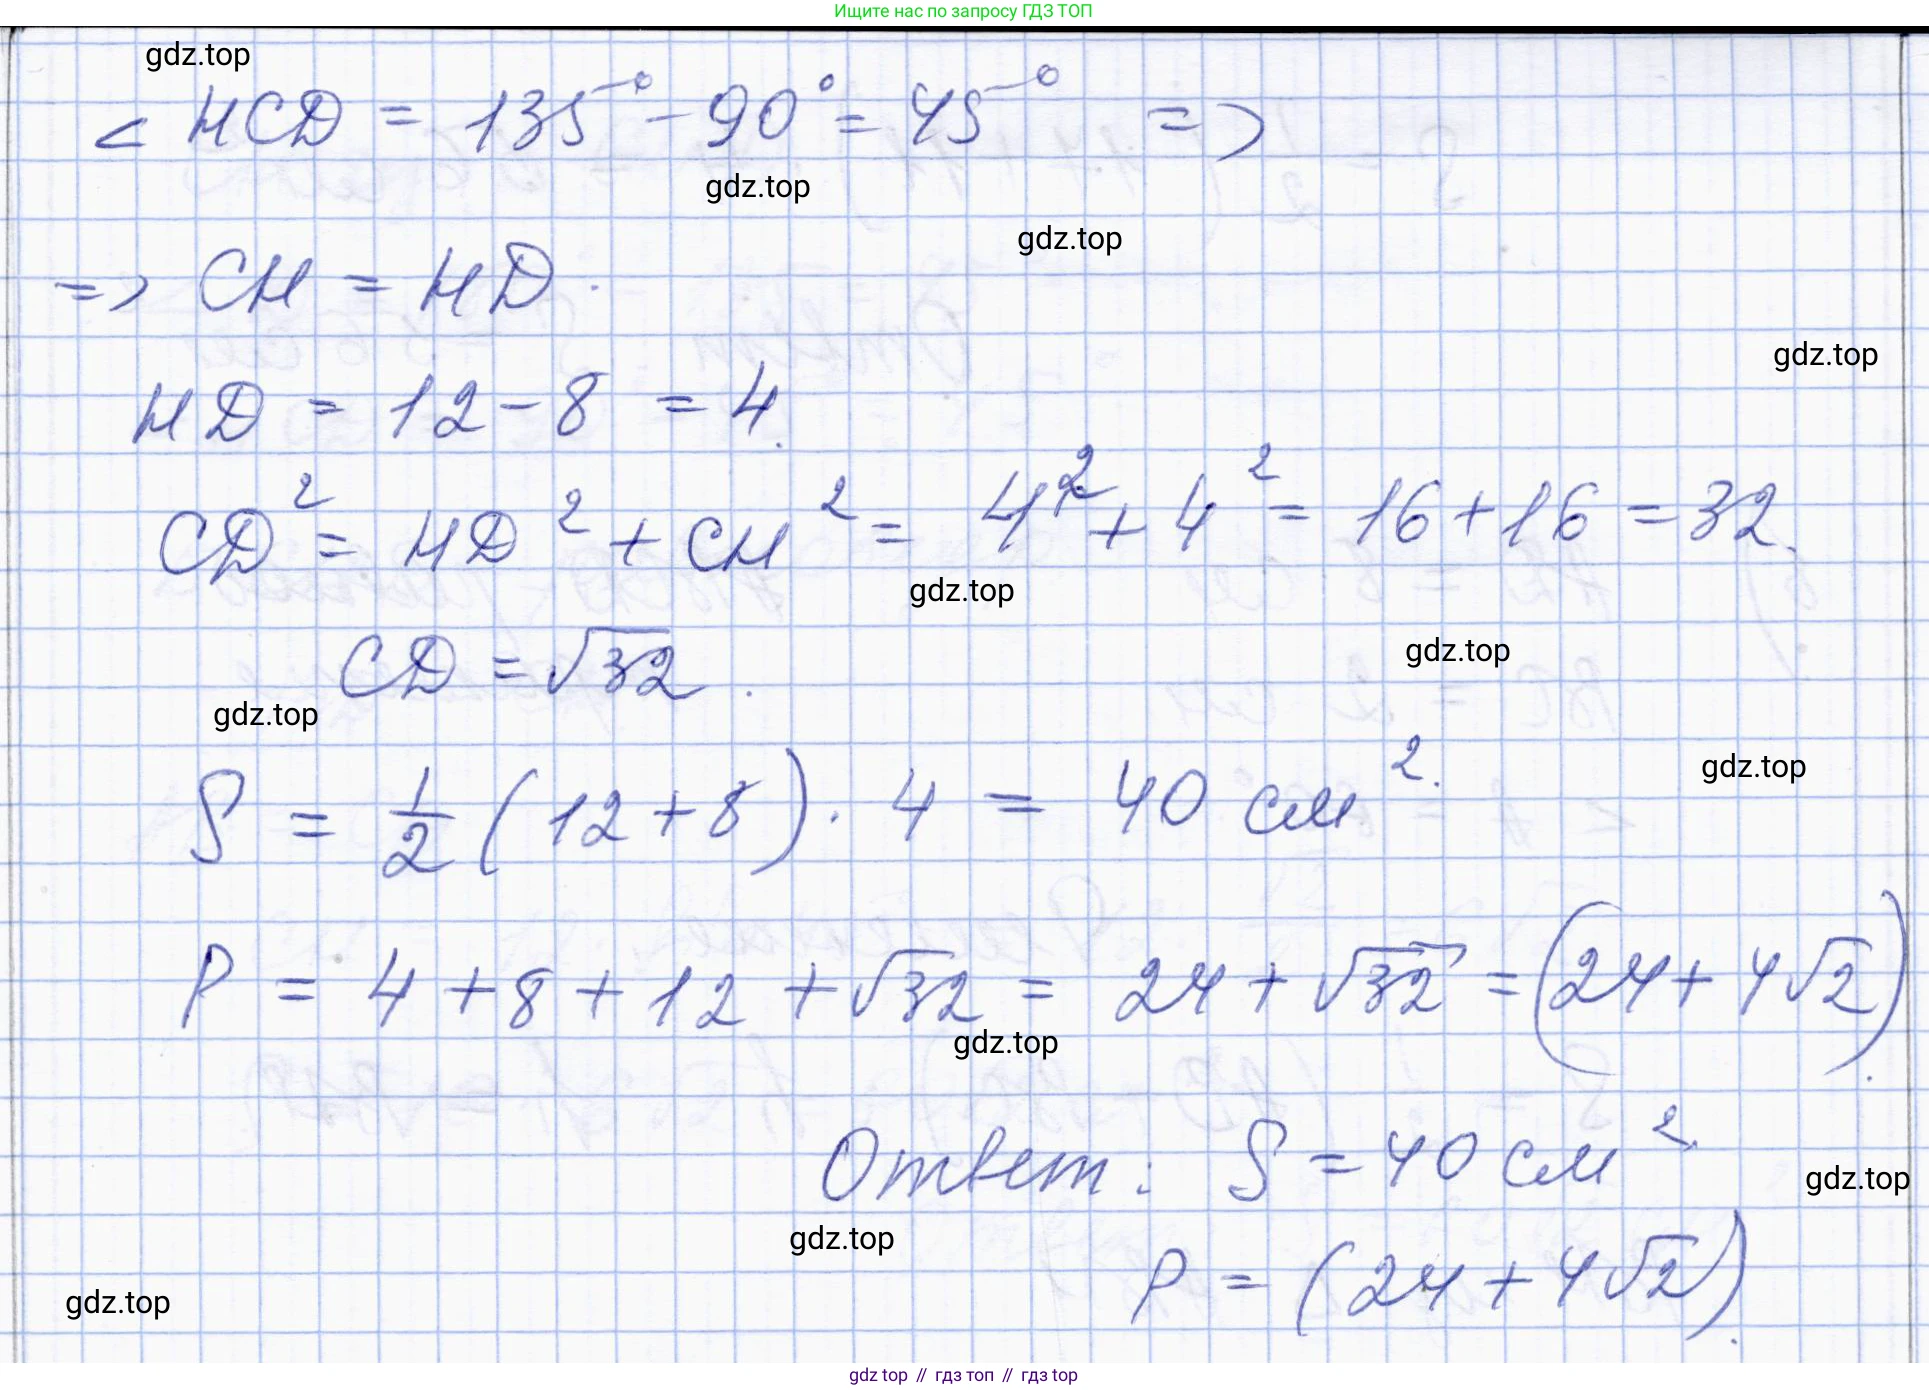 Ищите нас по запросу ГДЗ ТОП
gdz.top
< HCD = 135° - 90° = 45° =>
gdz.top
gdz.top
=> CH = HD.
gdz.top
HD = 12 - 8 = 4.
CD² = HD² + CH² = 4² + 4² = 16 + 16 = 32.
gdz.top
gdz.top
CD = √32.
gdz.top
gdz.top
S = 1/2 (12 + 8) · 4 = 40 см².
P = 4 + 8 + 12 + √32 = 24 + √32 = (24 + 4√2).
gdz.top
Ответ: S = 40 см²,
gdz.top
gdz.top
P = (24 + 4√2).
gdz.top
gdz.top // гдз топ // гдз.top